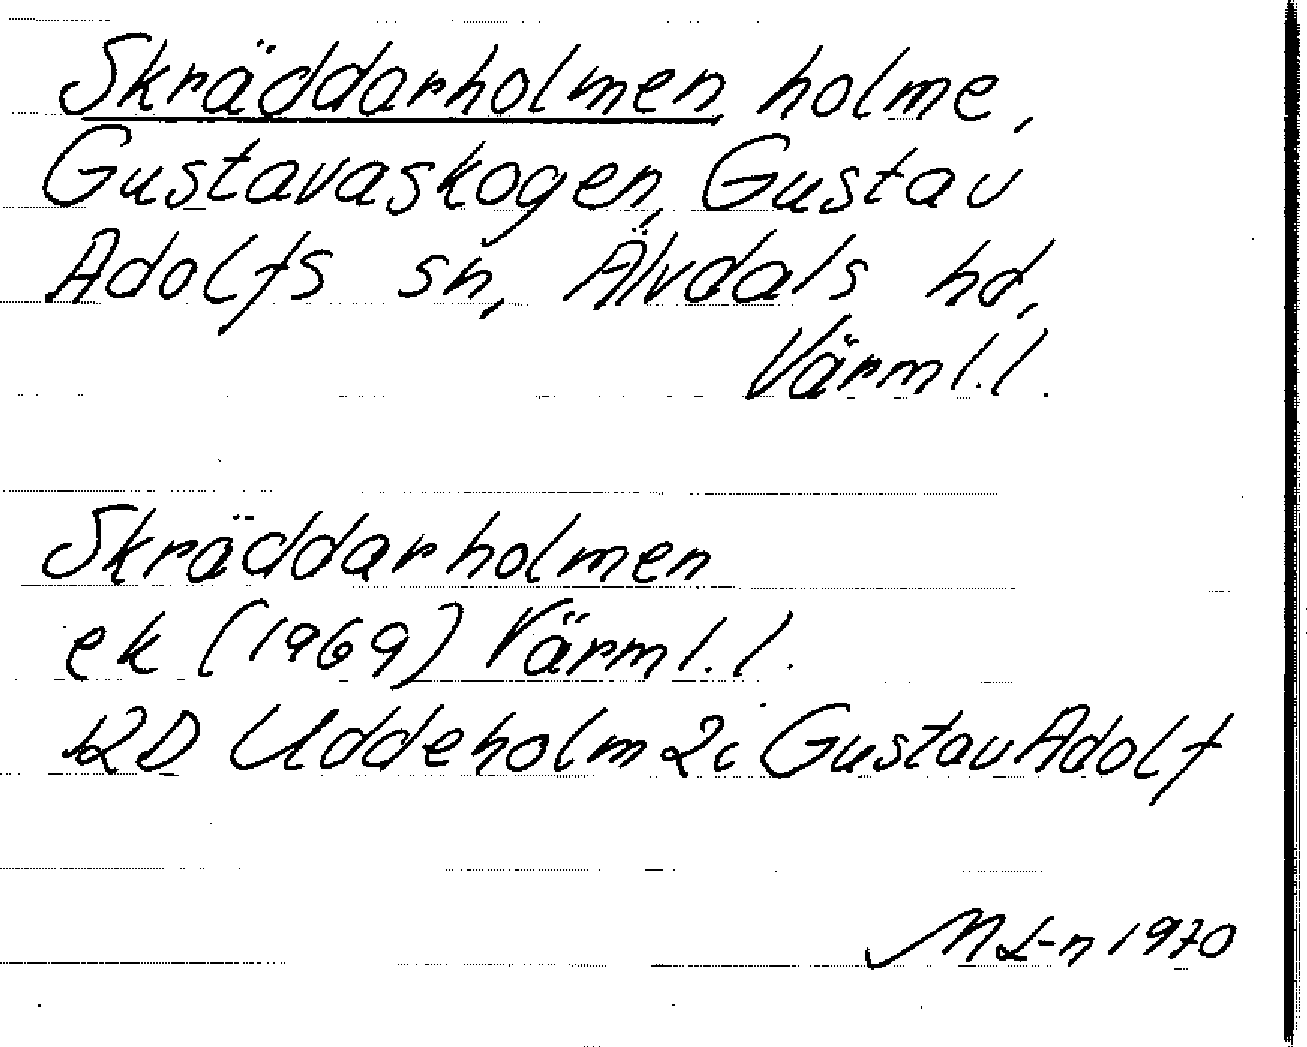 Skräddarholmen, holme,
Gustavaskogen, Gustav
Adolfs sn, Älvdals hd,
Värml.l.
Skräddarholmen
ek (1969) Värml.l.
12D Uddeholm 2c Gustav Adolf
M L-n 1970